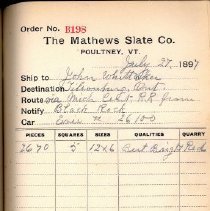 Order No. R198
The Mathews Slate Co.
POULTNEY, VT.
July 27, 1897
Ship to John Whittaker
Destination Ont.
Route via Mich Cent. R.R. from
Notify Black Rock
Car Erie # 26100
PIECES SQUARES SIZES QUALITIES QUARRY
2670 5 12x6 Best